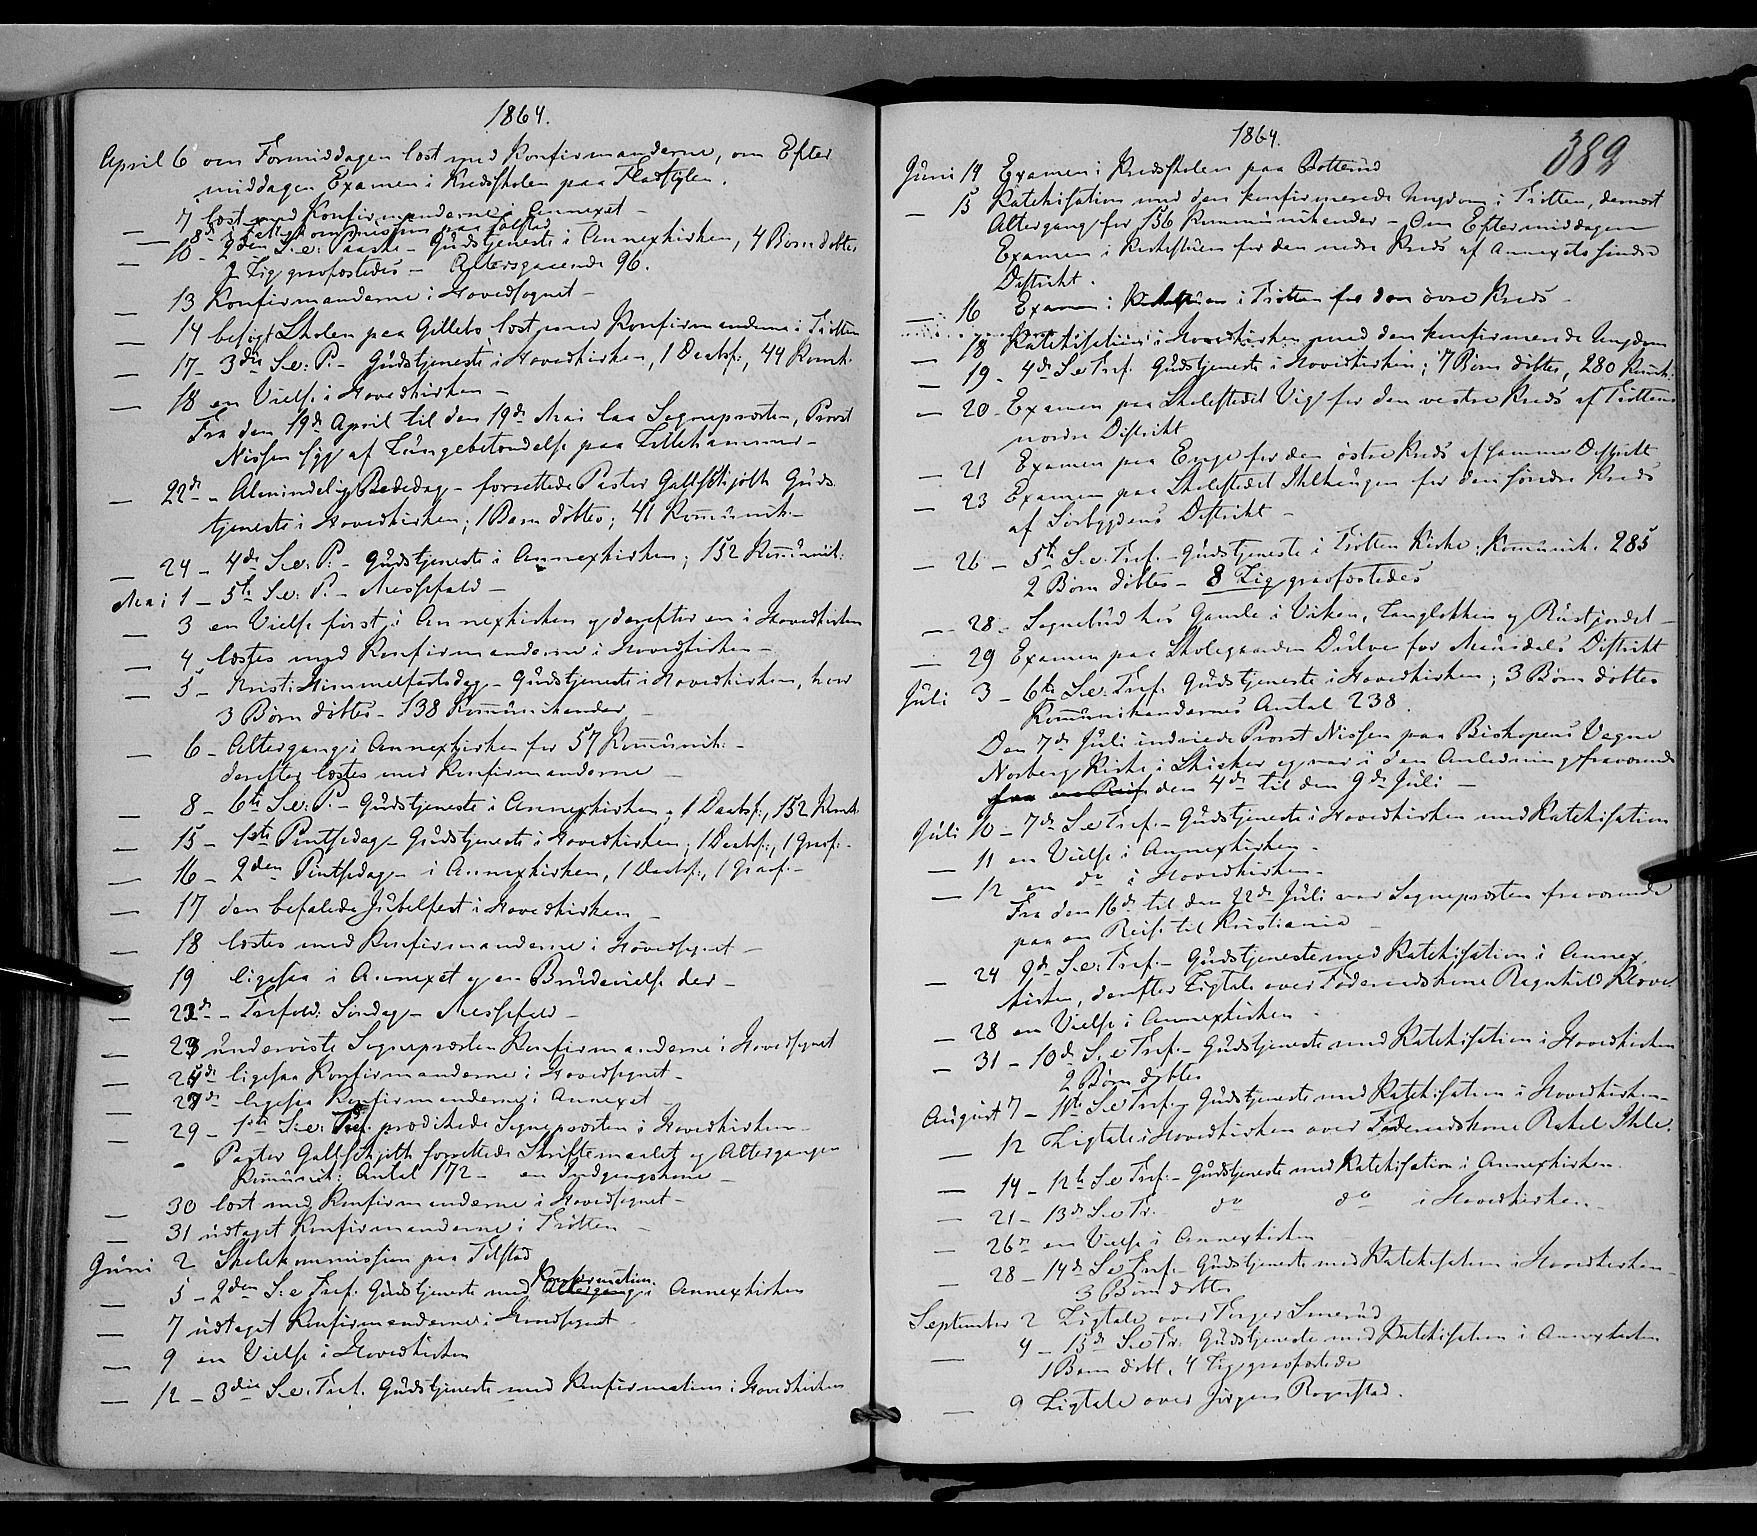 1864.
April 6 om Formiddagen læst med Konfirmanderne, om Efter
middagen Examen i Kredsskolen paa Fladstylen.
— 7 læst med Konfirmanderne i Annexet —
— 8de paa Tolstad
— 10 - 2den S. e. Paaske - Gudstjeneste i Annexkirken, 4 Børn døbtes
2 Lig gravfæstedes - Altersgaaende 96.
— 13 Konfirmanderne i Hovedsognet —
— 14 besøgt Skolen paa Gillebo læst med Konfirmanderne i Trøtten
— 17 - 3die S. e. P. - Gudstjeneste i Hovedkirken, 1 Daabsf., 44 Komk.
— 18 en Vielse i Hovedkirken —
Fra den 19de April til den 19de Mai laa Sognepræsten, Provst
Nissen syg af Lungebetændelse paa Lillehammer —
— 22de - Almindelig Bededag - forrettede Pastor Gallschjøth Guds
tjeneste i Hovedkirken; 1 Barn døbtes; 41 Kommunik. —
— 24 - 4de S. e. P. - Gudstjeneste i Annexkirken; 152 Kommunik:
Mai 1 - 5te S. e. P. - Messefald —
— 3 en Vielse først i Annexkirken og derefter en i Hovedkirken
— 4 læstes med Konfirmanderne i Hovedkirken —
— 5 - Kristi Himmelfartsdag - Gudstjeneste i Hovedkirken, hvor
3 Børn døbtes - 138 Kommunikander —
— 6 - Altergang i Annexkirken for 57 Kommunik: -
derefter læstes med Konfirmanderne —
— 8 - 6te S. e. P. - Gudstjeneste i Annexkirken, 1 Daabsf., 152 Komk
— 15 - 1ste Pintsedag - Gudstjeneste i Hovedkirken, 1 Daabsf., 1 Gravf. -
— 16 - 2den Pintsedag - i Annexkirken, 1 Daabsf., 1 Gravf. -
— 17 den befalede Jubelfest i Hovedkirken —
— 18 læstes med Konfirmanderne i Hovedsognet —
— 19 ligesaa i Annexet og en Brudevielse der —
— 22de - Trefold: Søndag - Messefald —
— 23 underviste Sognepræsten Konfirmanderne i Hovedsognet
— 24de ligesaa Konfirmanderne i Hovedsognet —
— 27de ligesaa Konfirmanderne i Annexet —
— 29 - 1ste S. e. Tref. prædikede Sognepræsten i Hovedkirken —
- Pastor Gallschjøth forrettede Skriftemaalet og Altergangen
Kommunik: Antal 172 - en Indgangskone —
— 30 læst med Konfirmanderne i Hovedsognet —
— 31 udtaget Konfirmanderne i Trøtten —
Juni 2 Skolekommission paa Tolstad
Konfirmation.
— 5 - 2den S. e. Tref. Gudstjeneste med Altergang i Annexkirken
— 7 udtaget Konfirmanderne i Hovedsognet
— 9 en Vielse i Hovedkirken
— 12 - 3die S. e. Tref. Gudstjeneste med Konfirmation i Hovedkirken
1864.
382
Juni 14 Examen i Kredsskolen paa Botterud
— 15 Katekisation med den konfirmerede Ungdom i Trøtten, dernæst
Altergang for 156 Kommunikander - Om Eftermiddagen
Examen i Kirkestuen for den nedre Kreds af Annexets søndre
Distrikt.
— 16 Examen i Kirkestuen i Trøtten for den øvre Kreds —
— 18 Katekisation i Hovedkirken med den konfirmerede Ungdom
— 19 - 4de S. e. Tref. Gudstjeneste i Hovedkirken; 7 Børn døbtes, 280 Komk:
— 20 - Examen paa Skolestedet Vig for den vestre Kreds af Trøttens
nordre Distrikt
— 21 Examen paa Enge for den østre Kreds af samme Distrikt
— 23 Examen paa Skolestedet Ihlhaugen for den søndre Kreds
af Sørbygdens Distrikt —
— 26 - 5te S. e. Tref. - Gudstjeneste i Trøtten Kirke: Kommunik. 285
2 Børn døbtes - 8 Lig gravfæstedes
— 28 - Sognebud hos Gamle i Viken, Langløkken og Rustjordet —
— 29 Examen paa Skolegaarden Dulven for Musdals Distrikt
Juli 3 - 6te S. e. Tref. Gudstjeneste i Hovedkirken; 3 Børn døbtes
Kommunikandernes Antal 238.
Den 7de Juli indviede Provst Nissen paa Biskopens Vegne
Norberg Kirke i Skiaker og var i den Anledning fraværende
fra den 4de til den 9de Juli —
Juli 10 - 7de S. e. Tref. - Gudstjeneste i Hovedkirken med Katekisation
— 11 en Vielse i Annexkirken —
— 12 en do i Hovedkirken —
Fra den 16de til den 22de Juli var Sognepræsten fraværende
paa en Reise til Kristiania —
— 24 9de S. e. Tref. - Gudstjeneste med Katekisation i Annex-
kirken, derefter Ligtale over Føderaadskone Ragnhild Klove
— 28 en Vielse i Annexkirken —
— 31 - 10de S. e. Tref. - Gudstjeneste med Katekisation i Hovedkirken
2 Børn døbtes
August 7 - 11te S. e. Tref. - Gudstjeneste med Katekisation i Hovedkirken —
— 12 Ligtale i Hovedkirken over Føderaadskone Rakel Ihle.
— 14 - 12te S. e. Tref. - Gudstjeneste med Katekisation i Annexkirken.
— 21 - 13de S. e. Tr. do do i Hovedkirken —
— 26de en Vielse i Annexkirken
— 28 - 14de S. e. Tref. - Gudstjeneste med Katekisation i Hovedkirken
3 Børn døbtes
September 2 Ligtale over Torger Smerud
— 4 - 15de S. e. Tr. Gudstjeneste med Katekisation i Annexkirken
1 Barn døbt, 4 Lig gravfæstede
— 9 Ligtale over Jørgen Rognstad.